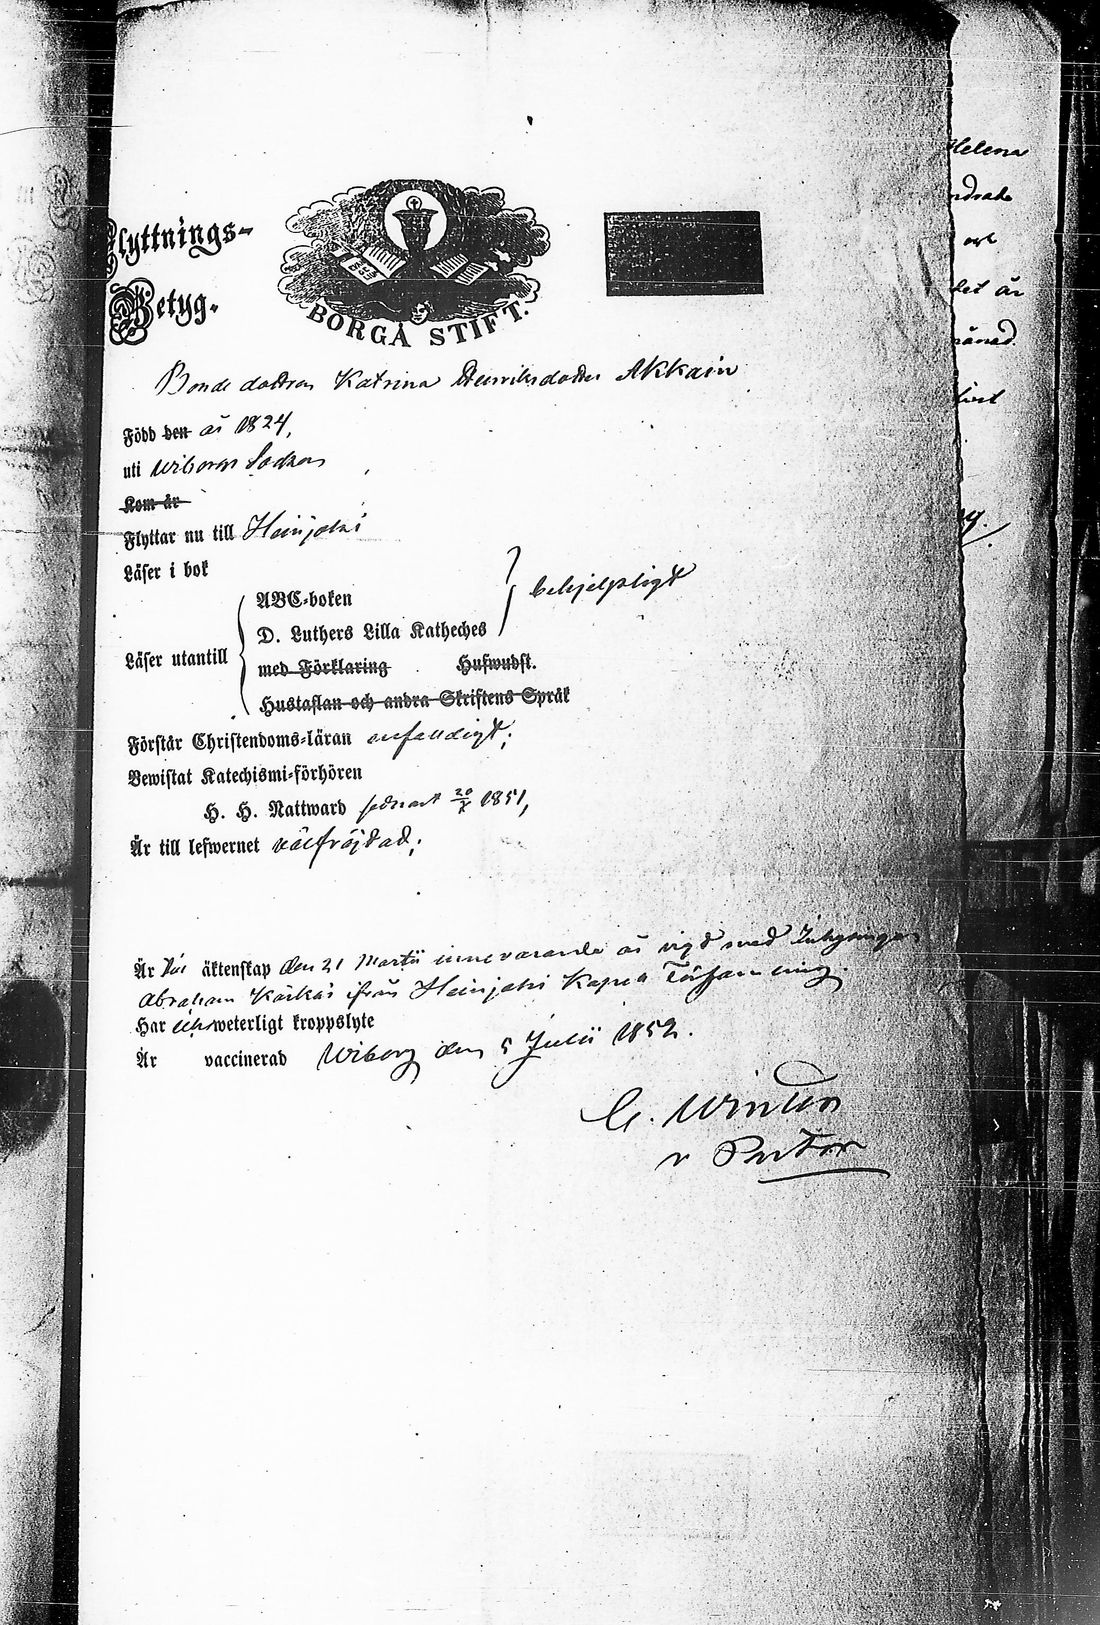 Flyttnings-
Betyg.
BORGÅ STIFT.
Bonde dottren Katrina Henriksdotter Akkain
Född den år 1824,
uti Wiborgs Sochen
Kom år
Flyttar nu till Heinjoki
Läser i bok
ABC-boken
D. Luthers Lilla Katheches
behjelpligt
Läser utantill
med Förklaring Huswudst.
Hustaflan och andra Skriftens Språk
Förstår Christendoms-läran enfaldigt;
Bewistat Katechismi-förhören
H. H. Nattward sednast 20/X 1851,
Är till lefwernet välfräjdad;
Är äktenskap den 21 Martii innevarande år vigd med Inhysingen
Abraham Kärkäs ifrån Heinjoki Kapell Församling.
Har weterligt kroppslyte
Är vaccinerad Wiborg den 5 Julii 1852.
v Pastor
Helena
ndrade
och
det år
månad